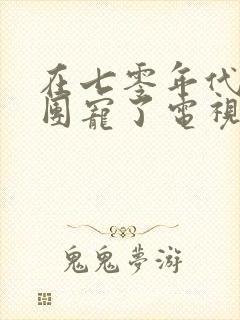 在七零年代
團寵了電視
鬼鬼夢游